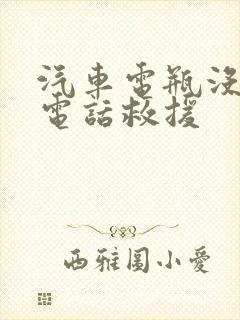 汽車電瓶沒
電話救援
西雅圖小愛